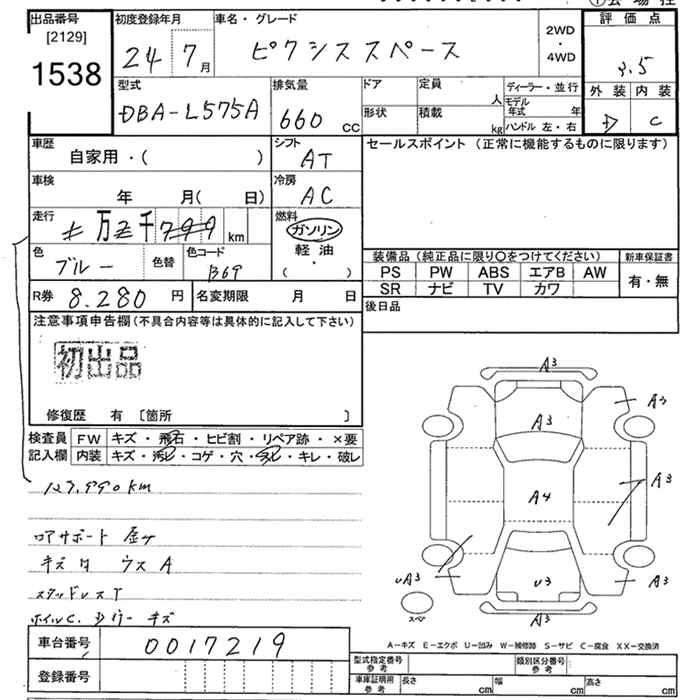 出品番号
[2129]
1538
初度登録年月
24 7月
車名・グレード
ピクシススペース
2WD
・
4WD
評価点
3.5
外装 内装
D C
型式
DBA-L575A
排気量
660 cc
ドア
形状
定員 人
積載 kg
ディーラー・並行
モデル年式 年
ハンドル 左・右
車歴
自家用・( )
シフト
AT
セールスポイント (正常に機能するものに限ります)
車検
年 月( 日)
冷房
AC
走行
万 千 799 km
燃料
ガソリン
軽油
( ・ )
色
ブルー
色替
色コード
B69
装備品 (純正品に限り○をつけてください)
新車保証書
PS PW ABS エアB AW
SR ナビ TV カワ
有・無
R券 8.280 円
名変期限 月 日
後日品
注意事項申告欄(不具合内容等は具体的に記入して下さい)
初出品
修復歴 有 [箇所 ]
検査員
記入欄
FW キズ・飛石・ヒビ割・リペア跡・×要
内装 キズ・汚レ・コゲ・穴・スレ・キレ・破レ
127,990km
コアサポート 歪ケ
ウス A
スタッドレスT
ホイルC. キズ
A3
A3
A3
A4
A3
UA3
U3
A3
A3
スペア
A-キズ E-エクボ U-凹み W-補修跡 S-サビ C-腐食 XX-交換済
車台番号
0017219
登録番号
型式指定番号
参考
類別区分番号
参考
車庫証明用
参考
長さ cm
幅 cm
高さ cm